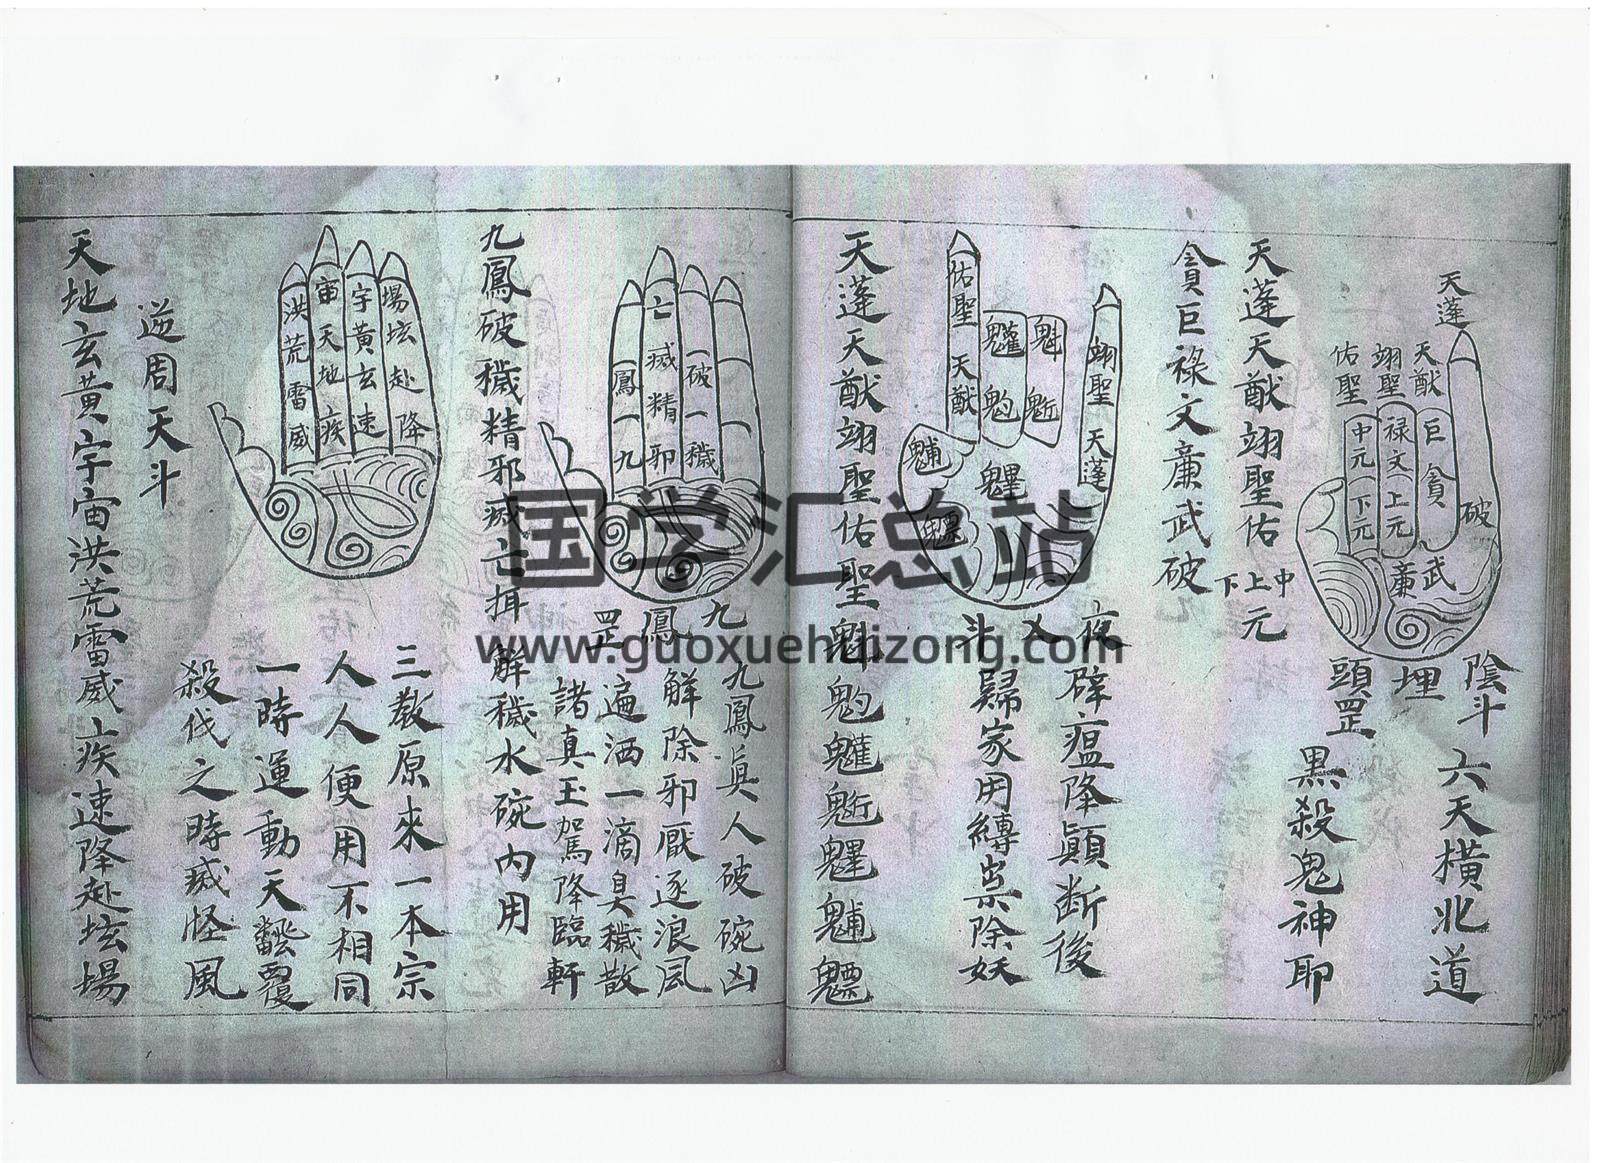 天蓬
天猷
翊聖
佑聖
巨貪
祿文上元
中元下元
破
武
廉
陰斗
埋
頭罡
六天橫北道
黑殺鬼神耶
天蓬天猷翊聖佑
中上下元
貪巨祿文廉武破
翊聖天蓬
魁䰢
魓
佑聖天猷
夜
入
斗
碎瘟降顛斷後
歸家用縛祟除妖
天蓬天猷翊聖佑聖魁
一破一穢
亡滅精邪
鳳一九
九
鳳
罡
九鳳真人破碗凶
解除邪厭逐浪風
遍洒一滴臭穢散
諸真玉駕降臨軒
九鳳破穢精邪滅亡
解穢水碗內用
場坛赴降
宇黃玄速
宙天地疾
洪荒雷威
三教原來一本宗
人人便用不相同
一時運動天翻覆
殺伐之時滅怪風
逆周天斗
天地玄黃宇宙洪荒雷威疾速降赴坛場
国学汇总站
www.guoxuehuizong.com